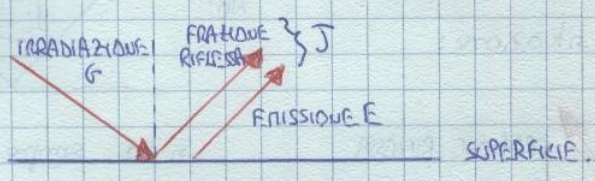 IRRADIAZIONE
G
FRAZIONE
RIFLESSA
J
EMISSIONE E
SUPERFICIE.